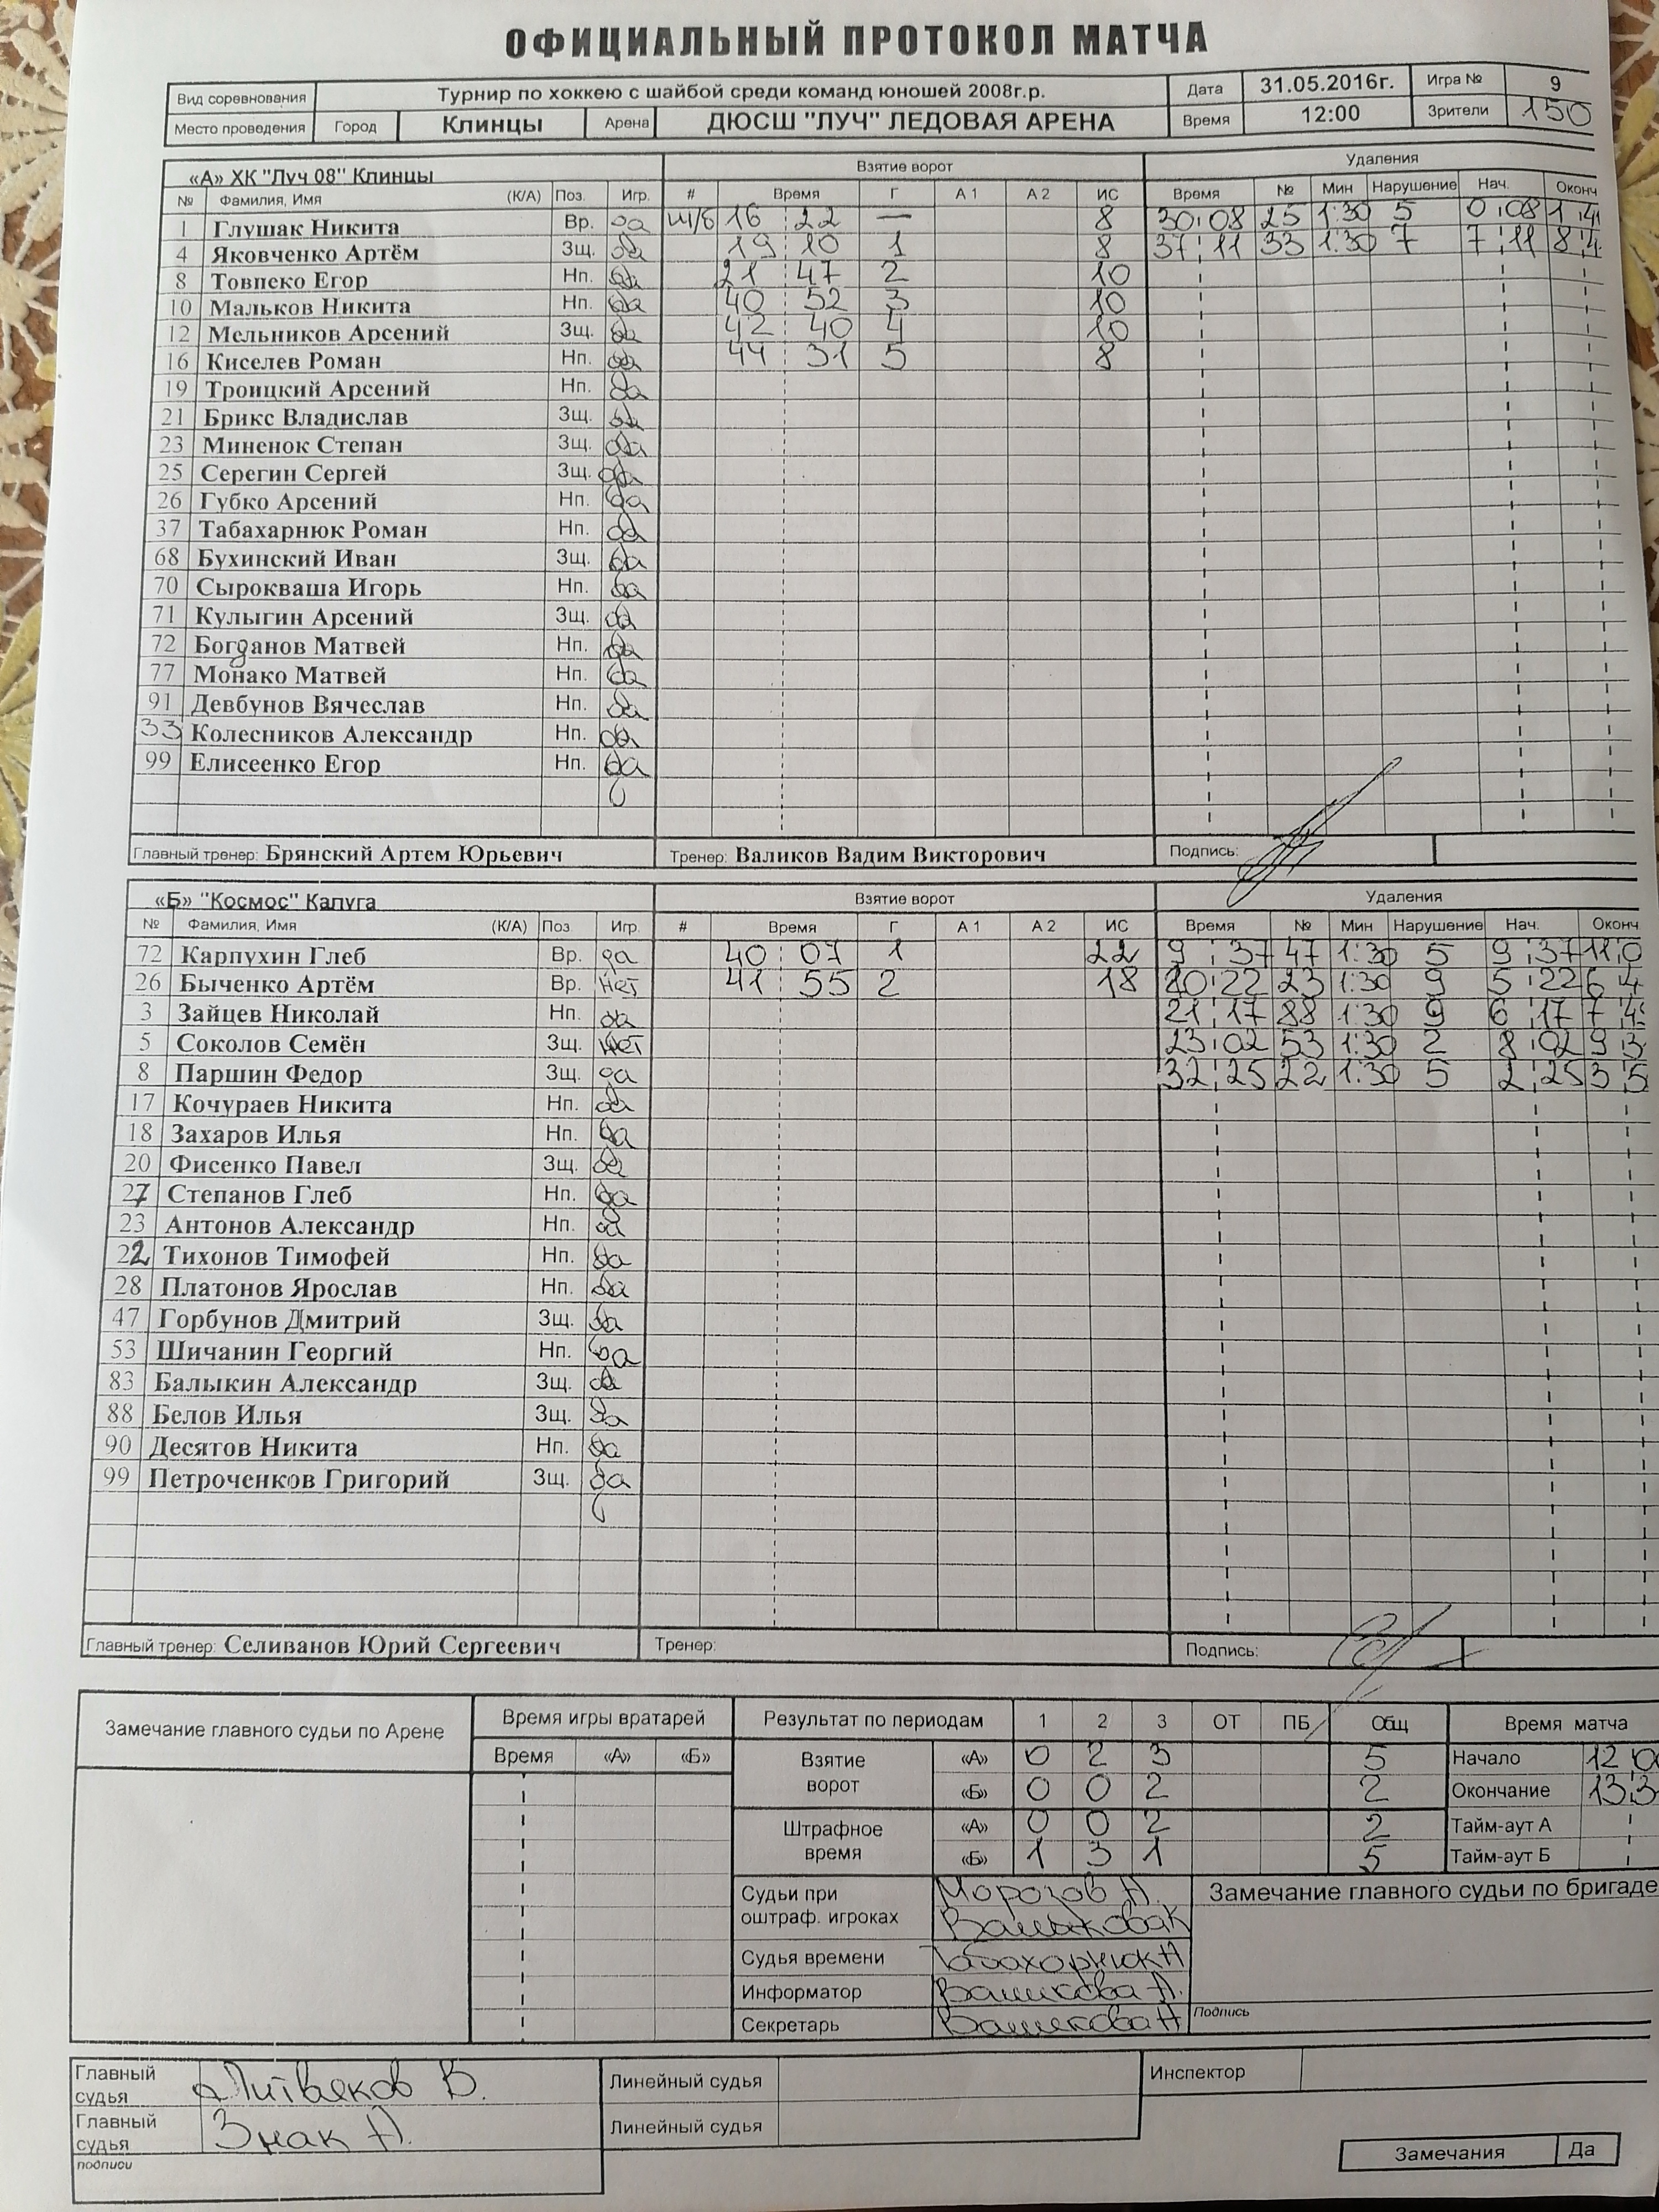 ОФИЦИАЛЬНЫЙ ПРОТОКОЛ МАТЧА
Вид соревнования Турнир по хоккею с шайбой среди команд юношей 2008г.р. Дата 31.05.2016г. Игра № 9
Место проведения Город Клинцы Арена ДЮСШ "ЛУЧ" ЛЕДОВАЯ АРЕНА Время 12:00 Зрители 150
«А» ХК "Луч 08" Клинцы Взятие ворот Удаления
№ Фамилия, Имя (К/А) Поз. Игр. # Время Г А 1 А 2 ИС Время № Мин Нарушение Нач. Оконч
1 Глушак Никита Вр. да ш/б 16 22 — 8 30:08 25 1:30 5 0:08 1 4
4 Яковченко Артём Зщ. да 19 10 1 8 37:11 33 1:30 7 7:11 8 4
8 Товпеко Егор Нп. да 21 47 2 10
10 Мальков Никита Нп. да 40 52 3 10
12 Мельников Арсений Зщ. да 42 40 4 10
16 Киселев Роман Нп. да 44 31 5 8
19 Троицкий Арсений Нп. да
21 Брикс Владислав Зщ. да
23 Миненок Степан Зщ. да
25 Серегин Сергей Зщ. да
26 Губко Арсений Нп. да
37 Табахарнюк Роман Нп. да
68 Бухинский Иван Зщ. да
70 Сырокваша Игорь Нп. да
71 Кулыгин Арсений Зщ. да
72 Богданов Матвей Нп. да
77 Монако Матвей Нп. да
91 Девбунов Вячеслав Нп. да
33 Колесников Александр Нп. да
99 Елисеенко Егор Нп. да
Главный тренер: Брянский Артем Юрьевич Тренер: Валиков Вадим Викторович Подпись:
«Б» "Космос" Калуга Взятие ворот Удаления
№ Фамилия, Имя (К/А) Поз Игр. # Время Г А 1 А 2 ИС Время № Мин Нарушение Нач. Оконч
72 Карпухин Глеб Вр. да 40 07 1 22 9:37 47 1:30 5 9:37 11 0
26 Быченко Артём Вр. нет 41 55 2 18 20:22 23 1:30 9 5:22 6 4
3 Зайцев Николай Нп. да 21:17 88 1:30 9 6:17 7 4
5 Соколов Семён Зщ. нет 23:02 53 1:30 2 8:02 9 3
8 Паршин Федор Зщ. да 32:25 22 1:30 5 2:25 3 5
17 Кочураев Никита Нп. да
18 Захаров Илья Нп. да
20 Фисенко Павел Зщ. да
27 Степанов Глеб Нп. да
23 Антонов Александр Нп. да
22 Тихонов Тимофей Нп. да
28 Платонов Ярослав Нп. да
47 Горбунов Дмитрий Зщ. да
53 Шичанин Георгий Нп. да
83 Балыкин Александр Зщ. да
88 Белов Илья Зщ. да
90 Десятов Никита Нп. да
99 Петроченков Григорий Зщ. да
Главный тренер: Селиванов Юрий Сергеевич Тренер: Подпись:
Замечание главного судьи по Арене Время игры вратарей Результат по периодам 1 2 3 ОТ ПБ Общ Время матча
Время «А» «Б» Взятие ворот «А» 0 2 3 5 Начало 12 0
«Б» 0 0 2 2 Окончание 13 3
Штрафное время «А» 0 0 2 2 Тайм-аут А
«Б» 1 3 1 5 Тайм-аут Б
Судьи при оштраф. игроках Морозов А. Замечание главного судьи по бригаде
Судья времени Табахорнюк А
Информатор Валикова А.
Секретарь Валикова А Подпись
Главный судья Литвяков В. Линейный судья Инспектор
Главный судья Знак А. Линейный судья
подписи Замечания Да